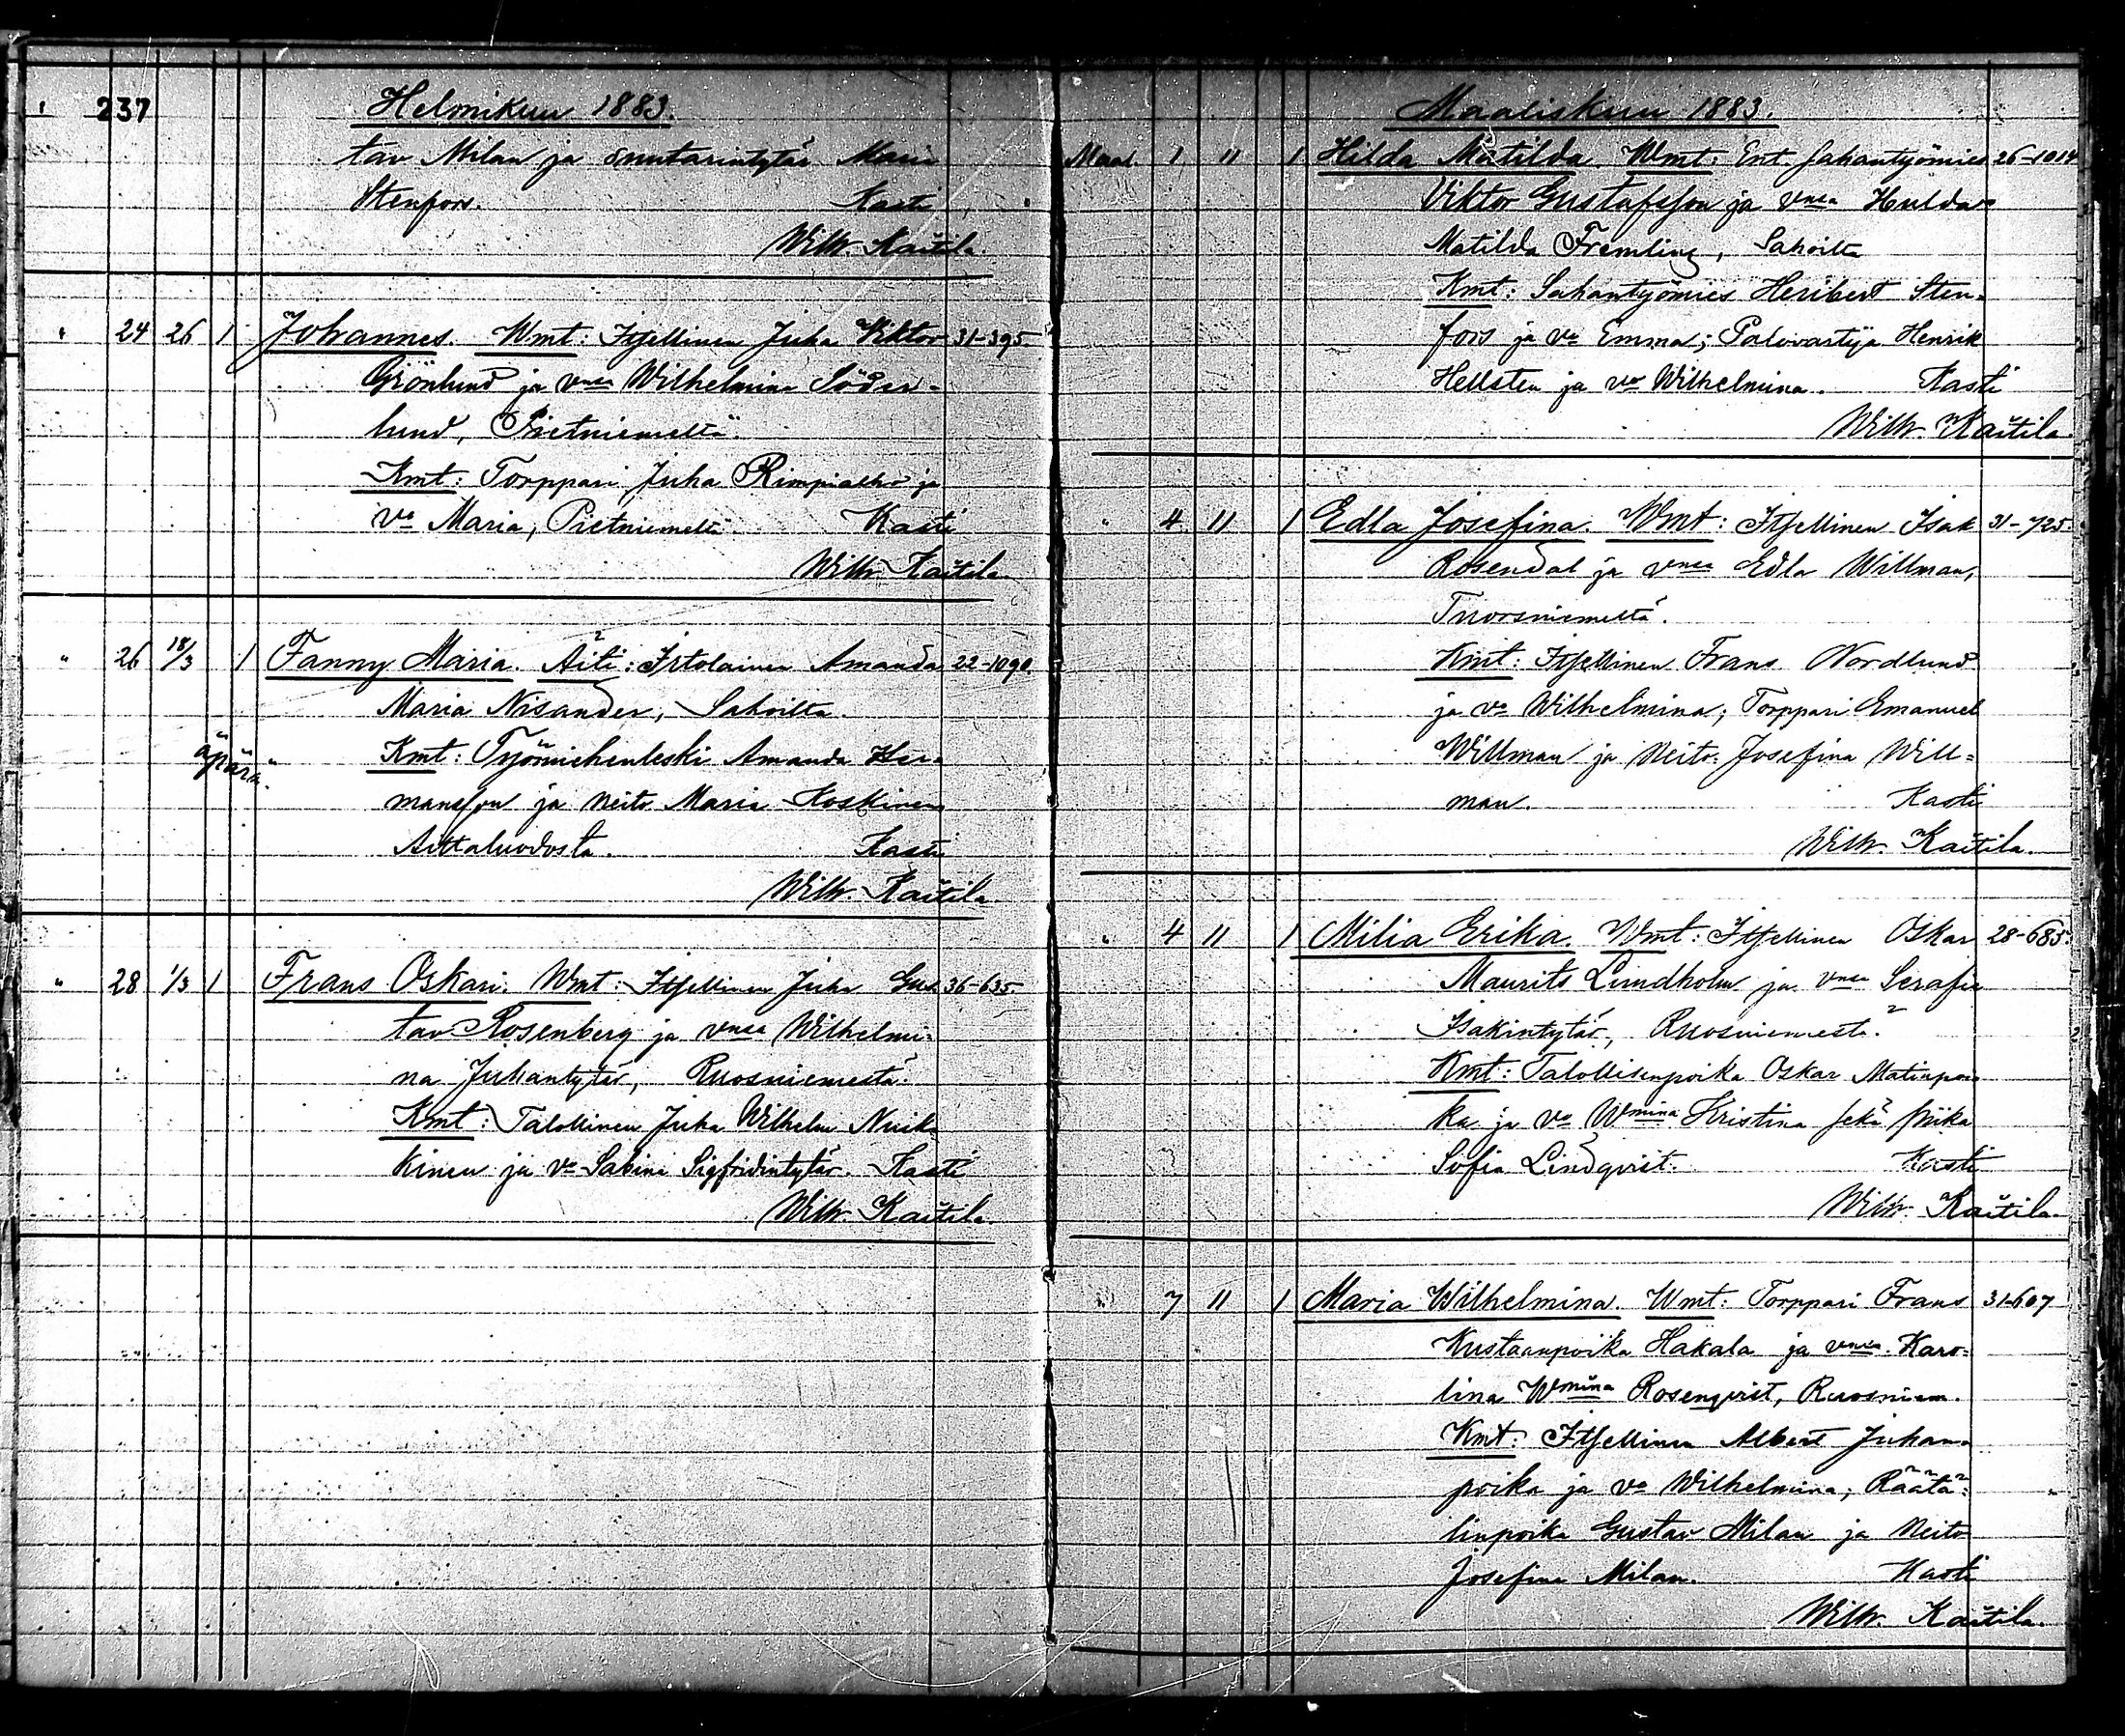 237 Helmikuu 1883.
tav Milan ja suutarintytär Maria
Stenfors. Kasti
Wilh. Kaitila.
" 24 26 1 Johannes. Wmt: Itsellinen Juha Viktor 31-395.
Grönlund ja vnsa Wilhelmina Söder-
lund, Pietniemeltä.
Kmt: Torppari Juha Rimpialho ja
Vo Maria, Pietniemeltä. Kasti
Wilh. Kaitila.
" 26 18/3 1 Fanny Maria. Äiti: Irtolainen Amanda 22-1090.
Maria Nisander, Sahoilta.
äpärä. Kmt: Työmiehenleski Amanda Her-
mansson ja neito Maria Koskinen
Aittaluodosta. Kasti
Wilh. Kaitila.
" 28 1/3 1 Frans Oskari. Wmt: Itsellinen Juha Gus- 36-635
tav Rosenberg ja vnsa Wilhelmi-
na Juhantytär, Ruosniemestä.
Kmt: Talollinen Juha Wilhelm Nuik-
kinen ja vo Sabina Sigfridintytär. Kasti
Wilh. Kaitila.
Maaliskuu 1883.
Maal. 1 11 1 Hilda Matilda. Wmt: Ent. Sahantyömies 26-1014
Viktor Gustafsson ja vnsa Hulda
Matilda Fremling, Sahoilta
Kmt: Sahantyömies Heribert Sten-
fors ja vo Emma; Palovartija Henrik
Hellsten ja vo Wilhelmina. Kasti
Wilh. Kaitila.
" 4 11 1 Edla Josefina. Wmt: Itsellinen Isak 31-725.
Rosendal ja vnsa Edla Willman,
Tuorsniemeltä.
Kmt: Itsellinen Frans Nordlund
ja vo Wilhelmina; Torppari Emanuel
Willman ja Neito Josefina Will-
man. Kasti
Wilh. Kaitila.
" 4 11 1 Milia Erika. Wmt: Itsellinen Oskar 28-685.
Maurits Lundholm ja vnsa Serafia
Isakintytär, Ruosniemestä.
Kmt: Talollisenpoika Oskar Matinpoi-
ka ja vo Wmina Kristina sekä piika
Sofia Lindqvist. Kasti
Wilh. Kaitila.
" 7 11 1 Maria Wilhelmina. Wmt: Torppari Frans 31-607
Kustaanpoika Hakala ja vnsa Karo-
lina Wmina Rosenqvist, Ruosniem.
Kmt: Itsellinen Albert Juhan-
poika ja vo Wilhelmina; Räätä-
linpoika Gustav Milan ja Neito
Josefina Milan. Kasti
Wilh. Kaitila.